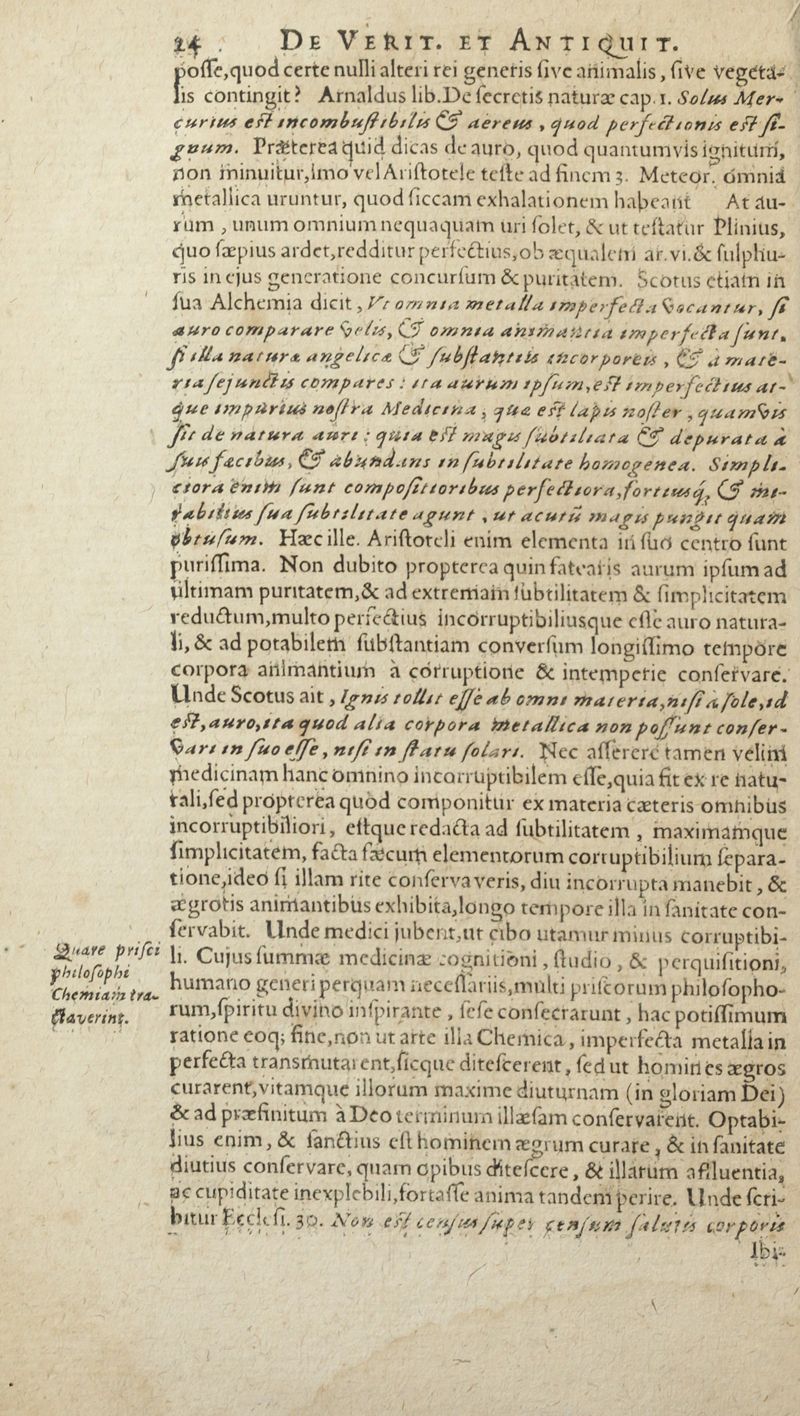 24 . DE VERIT. ET ANTIQUIT.
posse,quod certe nulli alteri rei generis sive animalis, sive vegeta-
lis contingit? Arnaldus lib.De secretis naturæ cap. 1. Solus Mer-
curius est incombustibilis & aereus, quod perfectionis est si-
gnum. Præterea quid dicas de auro, quod quantumvis ignitum,
non minuitur,imo vel Aristotele teste ad finem 3. Meteor. omnia
metallica uruntur, quod siccam exhalationem habeant At au-
rum, unum omnium nequaquam uri solet, & ut testatur Plinius,
quo sæpius ardet,redditur perfectius,ob æqualem ar. vi.& sulphu-
ris in ejus generatione concursum & puritatem. Scotus etiam in
sua Alchemia dicit, Vt omnia metalla imperfecta vocantur, si
auro comparare velis, & omnia animantia imperfecta sunt,
si illa naturæ angelicæ & substantiis incorporeis, & à mate-
ria sejunctis compares: ita aurum ipsum,est imperfectius at-
que impurius nostra Medicina, quæ est lapis noster, quamvis
sit de natura auri: quia est magis subtiliata & depurata à
suis fæcibus, & abundans in subtilitate homogenea. Simpli-
ciora enim sunt compositioribus perfectiora,fortiusq; & mi-
rabilius sua subtilitate agunt, ut acutũ magis pungit quam
obtusum. Hæc ille. Aristoteli enim elementa in suo centro sunt
purissima. Non dubito propterea quin fatearis aurum ipsum ad
ultimam puritatem,& ad extremam subtilitatem & simplicitatem
reductum,multo perfectius incorruptibiliusque esse auro natura-
li, & ad potabilem substantiam conversum longissimo tempore
corpora animantium à corruptione & intemperie conservare.
Unde Scotus ait, Ignis tollit esse ab omni materia,nisi à sole,id
est,auro,ita quod alia corpora metallica non possunt conser-
vari in suo esse, nisi in statu solari. Nec asserere tamen velim
medicinam hanc omnino incorruptibilem esse,quia fit ex re natu-
rali,sed propterea quòd componitur ex materia cæteris omnibus
incorruptibiliori, estque redacta ad subtilitatem, maximamque
simplicitatem, facta fæcum elementorum corruptibilium separa-
tione,ideo si illam rite conservaveris, diu incorrupta manebit, &
ægrotis animantibus exhibita,longo tempore illa in sanitate con-
servabit. Unde medici jubent,ut cibo utamur minus corruptibi-
li. Cujus summæ medicinæ cognitioni, studio, & perquisitioni,
humano generi perquam necessariis,multi priscorum philosopho-
rum,spiritu divino inspirante, sese consecrarunt, hac potissimum
ratione eoq; fine,non ut arte illa Chemica, imperfecta metalla in
perfecta transmutarent,sicque ditescerent, sed ut homines ægros
curarent,vitamque illorum maxime diuturnam (in gloriam Dei)
& ad præfinitum à Deo terminum illæsam conservarent. Optabi-
lius enim, & sanctius est hominem ægrum curare, & in sanitate
diutius conservare, quam opibus ditescere, & illarum affluentia,
ac cupiditate inexplebili,fortasse anima tandem perire. Unde scri-
bitur Ecclesi. 30. Non est census super censum salutis corporis
Ibi-
Quare prisci
philosophi
Chemiam tra-
ctaverint.